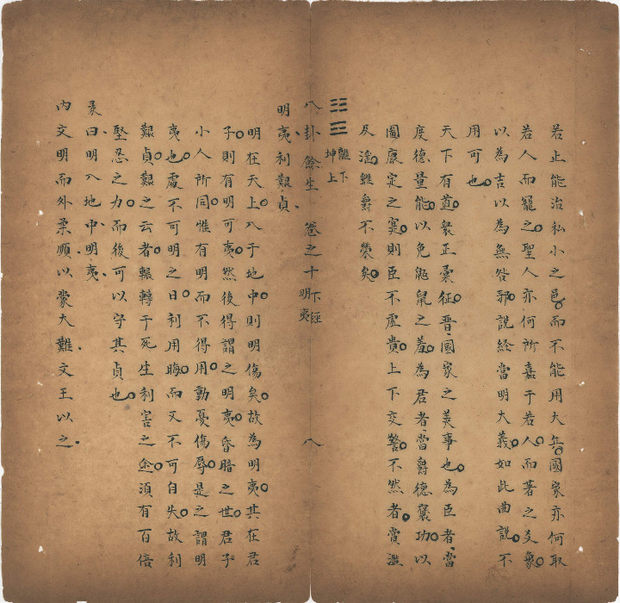 若止能治私小之邑而不能用大兵國家亦何取
若人而寵之聖人亦何所嘉于若人而著之爻象
以為吉以為無咎邪說経當明大義如此曲說不
用可也
天下有道衆正彙征晋國家之美事也為臣者當
度德量能以免鼫鼠之羞為君者當爵德襃功以
圖康定之寔則臣不虛貴上下交警不然者賞濫
反滛雖爵不榮矣
離下
坤上
八卦餘生 卷之十 下經 明夷 八
明夷利艱貞
明在天上入于地中則明傷矣故為明夷其在君
子則有明可夷然後得謂之明夷昏暗之世君子
小人所同惟有明而不得用動憂傷辱是之謂明
夷也處不可明之日利用晦而又不可自失故利
艱貞艱之云者輾轉于死生利害之途須有百倍
堅忍之力而後可以守其貞也
彖曰明入地中明夷
内文明而外柔順以蒙大難文王以之